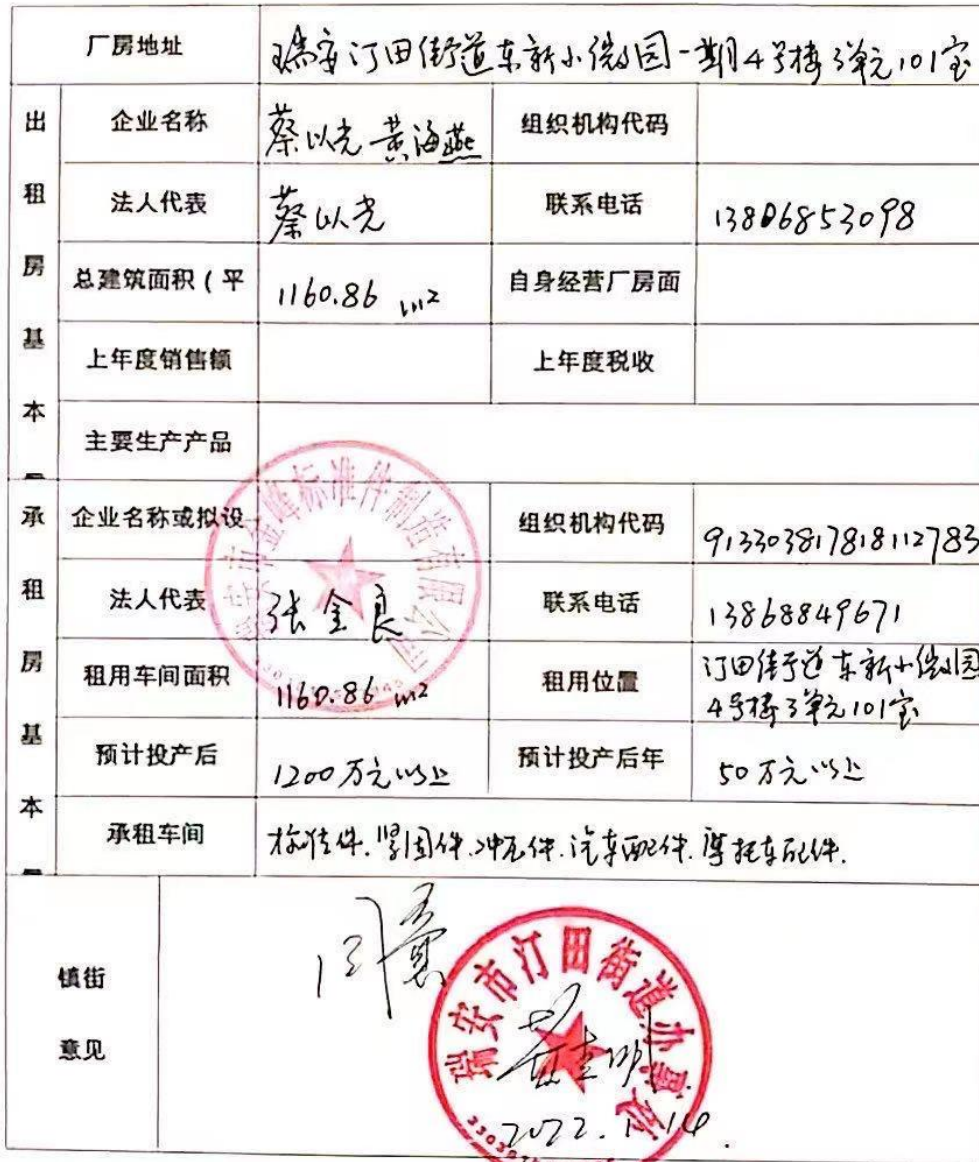 厂房地址 瑞安汀田街道东新小微园一期4号楼3单元101室
出租房基本
企业名称 蔡以光 黄海燕 组织机构代码
法人代表 蔡以光 联系电话 13806853098
总建筑面积(平 1160.86 m² 自身经营厂房面
上年度销售额 上年度税收
主要生产产品
承租房基本
企业名称或拟设 组织机构代码 913303817818112783
瑞安市金峰标准件制造有限公司
法人代表 张金良 联系电话 13868849671
租用车间面积 1160.86 m² 租用位置 汀田街道东新小微园
4号楼3单元101室
预计投产后 1200万元以上 预计投产后年 50万元以上
承租车间 标准件.紧固件.冲压件.汽车配件.摩托车配件.
镇街
意见
同意
瑞安市汀田街道办事处
2022.